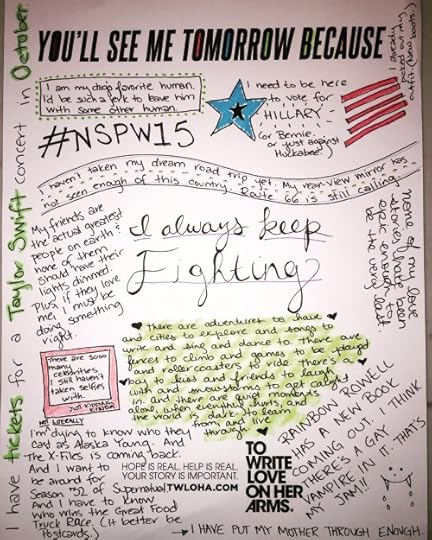 YOU'LL SEE ME TOMORROW BECAUSE
I am my dogs favorite human.
I'd be such a jerk to leave him
with some other human.
I need to be here
to vote for
HILLARY.
(or Bernie.
or just against
Huckabee.)
I already
picked out my
outfit. (New boots.)
#NSPW15
I haven't taken my dream road trip yet. My rear view mirror has
not seen enough of this country. Route 66 is still calling.
My friends are
the actual greatest
people on earth &
none of them
should have their
rights dimmed.
Plus, if they love
me, I must be
doing something
right.
I always keep
Fighting
none of my love
stories have been
epic enough to
be the very last
There are adventures to have
and cities to explore and songs to
write and sing and dance to. There are
fences to climb and games to be played
and rollercoasters to ride. There's a
boy to kiss and friends to laugh
with and snowstorms to get caught
in and there are quiet moments
alone, when everything hurts, and the
world is dark, to learn
from, and live
through.
There are sooo
many
celebrities
I still haven't
taken selfies
with.
JUST KIDDING.
KINDA.
NOT LITERALLY
I'm dying to know who they
cast as Alaska Young. And
The X-Files is coming back.
And I want to
be around for
Season 52 of Supernatural
And I have to know
who wins the Great Food
Truck Race. (It better be
Postcards.)
HOPE IS REAL. HELP IS REAL.
YOUR STORY IS IMPORTANT.
TWLOHA.COM
TO
WRITE
LOVE
ON HER
ARMS.
RAINBOW ROWELL
HAS A NEW BOOK
COMING OUT. I THINK
THERE'S A GAY
VAMPIRE IN IT. THAT'S
MY JAM.
I HAVE PUT MY MOTHER THROUGH ENOUGH.
I have tickets for a Taylor Swift concert in October.